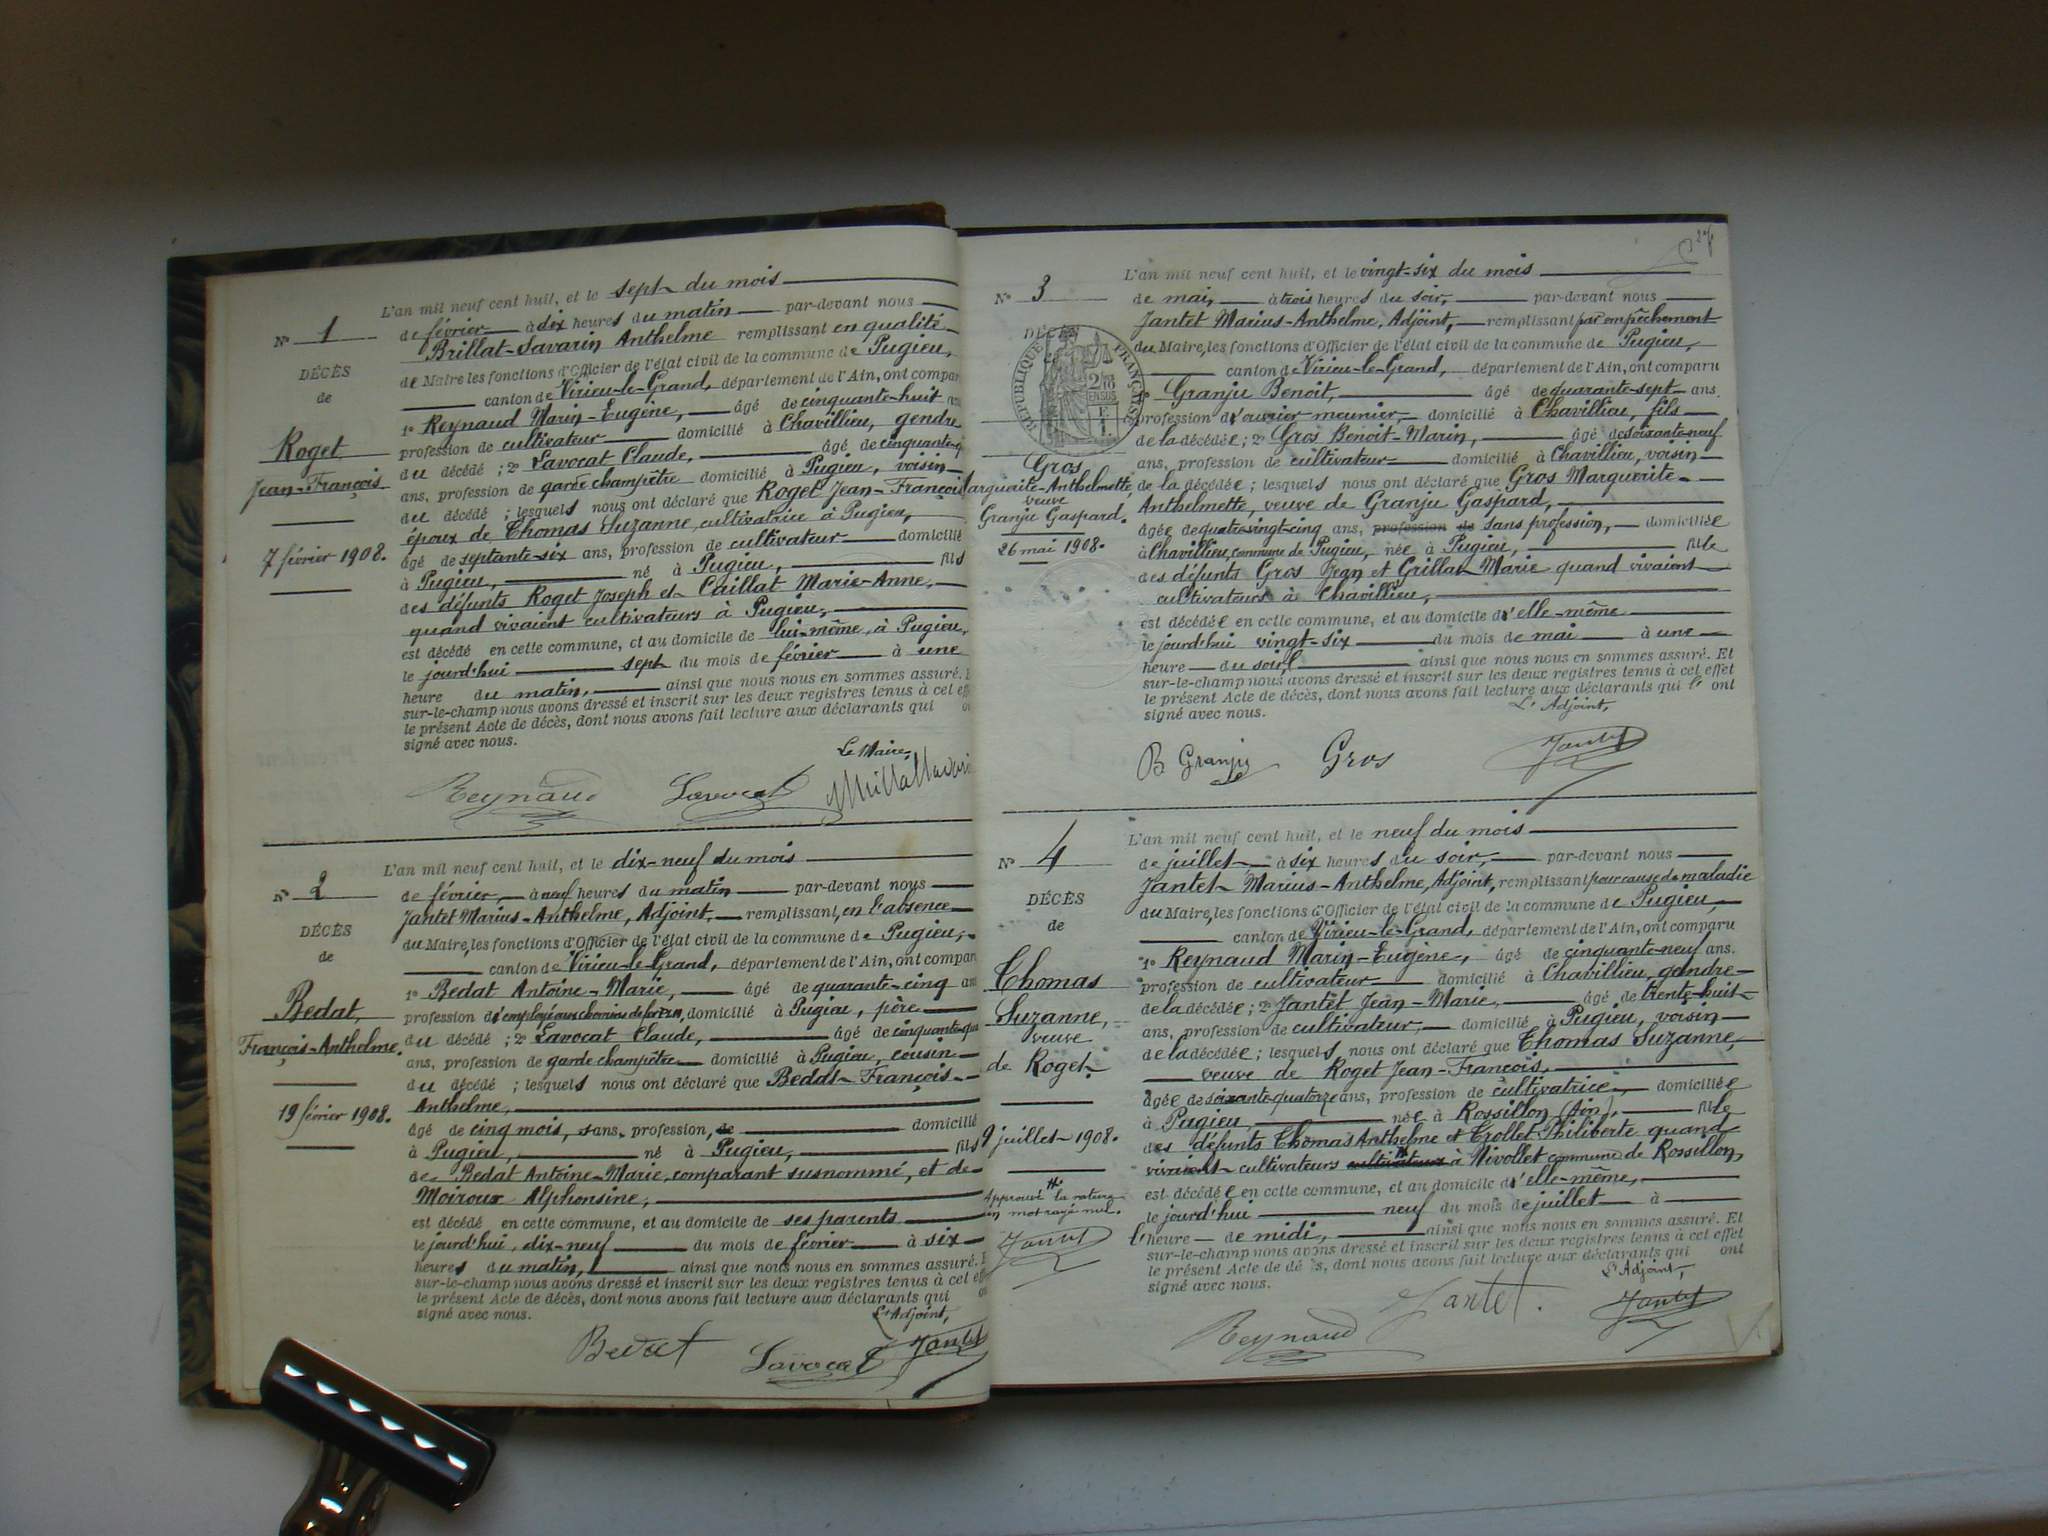 L'an mil neuf cent huit, et le sept du mois
N° 1
de février à dix heures du matin par-devant nous
Brillat-Savarin Anthelme remplissant en qualité
DÉCÈS
de Maire les fonctions d'Officier de l'état civil de la commune de Pugieu,
de
canton de Virieu-le-Grand, département de l'Ain, ont compar
1° Reynaud Marin-Eugène, âgé de cinquante-huit
Roget
profession de cultivateur domicilié à Chavillieu, gendre
Jean-François
du décédé ; 2° Lavocat Claude, âgé de cinquante-
ans, profession de garde champêtre domicilié à Pugieu, voisin
du décédé ; lesquels nous ont déclaré que Roget Jean-François
époux de Thomas Suzanne, cultivatrice à Pugieu,
7 février 1908.
âgé de septante-six ans, profession de cultivateur domicilié
à Pugieu, né à Pugieu, fils
des défunts Roget Joseph et Caillat Marie-Anne,
quand vivaient cultivateurs à Pugieu,
est décédé en cette commune, et au domicile de lui-même, à Pugieu,
le jourd'hui sept du mois de février à une
heure du matin, ainsi que nous nous en sommes assuré.
sur-le-champ nous avons dressé et inscrit sur les deux registres tenus à cet
le présent Acte de décès, dont nous avons fait lecture aux déclarants qui
signé avec nous.
Le Maire,
Reynaud Lavocat
L'an mil neuf cent huit, et le dix-neuf du mois
N° 2
de février, à neuf heures du matin par-devant nous
Jantet Marius-Anthelme, Adjoint, remplissant, en l'absence
DÉCÈS
du Maire, les fonctions d'Officier de l'état civil de la commune de Pugieu,
de
canton de Virieu-le-Grand, département de l'Ain, ont compar
1° Bedat Antoine-Marie, âgé de quarante-cinq
Bedat
profession d'employé aux chemins de fer P.L.M. domicilié à Pugieu, père
François-Anthelme.
du décédé ; 2° Lavocat Claude, âgé de cinquante-
ans, profession de garde champêtre domicilié à Pugieu, cousin
du décédé ; lesquels nous ont déclaré que Bedat François-
Anthelme,
19 février 1908.
âgé de cinq mois, sans profession, de domicilié
à Pugieu, né à Pugieu, fils
de Bedat Antoine-Marie, comparant susnommé, et de
Moiroux Alphonsine,
est décédé en cette commune, et au domicile de ses parents
le jourd'hui, dix-neuf du mois de février à six
heures du matin, ainsi que nous nous en sommes assuré.
sur-le-champ nous avons dressé et inscrit sur les deux registres tenus à cet
le présent Acte de décès, dont nous avons fait lecture aux déclarants qui
signé avec nous.
L'Adjoint,
Bedat Lavocat Jantet
L'an mil neuf cent huit, et le vingt-six du mois
N° 3
de mai, à trois heures du soir, par-devant nous
Jantet Marius-Anthelme, Adjoint, remplissant par empêchement
DÉCÈS
du Maire, les fonctions d'Officier de l'état civil de la commune de Pugieu,
RÉPUBLIQUE FRANÇAISE
canton de Virieu-le-Grand, département de l'Ain, ont comparu
1° Granju Benoit, âgé de quarante-sept ans.
profession d'ouvrier meunier, domicilié à Chavillieu, fils
de la décédée ; 2° Gros Benoit-Marin, âgé de soixante-neuf
Gros
ans, profession de cultivateur domicilié à Chavillieu, voisin
arguerite-Anthelmette,
de la décédée ; lesquels nous ont déclaré que Gros Marguerite-
veuve
Anthelmette, veuve de Granju Gaspard,
Granju Gaspard.
âgée de quatre-vingt-cinq ans, profession de sans profession, domiciliée
26 mai 1908.
à Chavillieu, commune de Pugieu, née à Pugieu, fille
des défunts Gros Jean et Grillat Marie quand vivaient
cultivateurs à Chavillieu,
est décédée en cette commune, et au domicile d'elle-même
le jourd'hui vingt-six du mois de mai à une
heure du soir, ainsi que nous nous en sommes assuré. Et
sur-le-champ nous avons dressé et inscrit sur les deux registres tenus à cet effet
le présent Acte de décès, dont nous avons fait lecture aux déclarants qui ont
signé avec nous.
L'Adjoint,
B Granju Gros Jantet
L'an mil neuf cent huit, et le neuf du mois
N° 4
de juillet à six heures du soir, par-devant nous
Jantet Marius-Anthelme, Adjoint, remplissant pour cause de maladie
DÉCÈS
du Maire, les fonctions d'Officier de l'état civil de la commune de Pugieu,
de
canton de Virieu-le-Grand, département de l'Ain, ont comparu
1° Reynaud Marin-Eugène, âgé de cinquante-neuf ans.
Thomas
profession de cultivateur domicilié à Chavillieu, gendre
de la décédée ; 2° Jantet Jean-Marie, âgé de trente-huit
Suzanne,
ans, profession de cultivateur, domicilié à Pugieu, voisin
veuve
de la décédée ; lesquels nous ont déclaré que Thomas Suzanne,
de Roget
veuve de Roget Jean-François,
âgée de soixante-quatorze ans, profession de cultivatrice, domiciliée
à Pugieu, née à Rossillon (Ain), fille
9 juillet 1908.
des défunts Thomas Anthelme et Trollet Philiberte quand
vivaient cultivateurs cultivateurs à Nivollet commune de Rossillon,
est décédée en cette commune, et au domicile d'elle-même,
Approuvé la rature
le jourd'hui neuf du mois de juillet à
un mot rayé nul.
l'heure de midi, ainsi que nous nous en sommes assuré. Et
Jantet
sur-le-champ nous avons dressé et inscrit sur les deux registres tenus à cet effet
le présent Acte de dé s, dont nous avons fait lecture aux déclarants qui ont
signé avec nous.
L'Adjoint,
Reynaud Jantet. Jantet